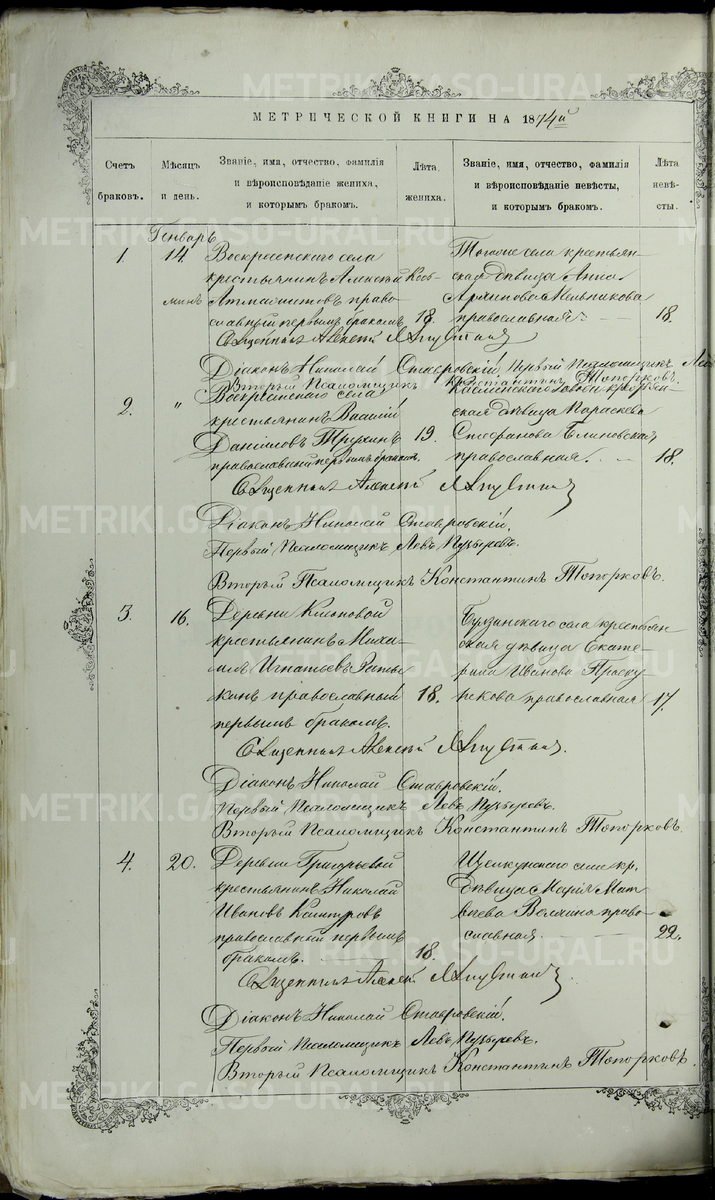 METRIKI.GASO-URAL.RU
МЕТРИЧЕСКОЙ КНИГИ НА 1874й
Счетъ браковъ.
Мѣсяцъ и день.
Званіе, имя, отчество, фамилія
и вѣроисповѣданіе жениха,
и которымъ бракомъ.
Лѣта жениха.
Званіе, имя, отчество, фамилія
и вѣроисповѣданіе невѣсты,
и которымъ бракомъ.
Лѣта невѣ-
сты.
Генварь
1. 14. Воскресенскаго села
крестьянинъ Алексѣй Козь-
минъ православный первымъ бракомъ 18.
Тогоже села крестьян-
ская дѣвица Анна
Мельникова
православная 18.
Священникъ Алексѣй
Діаконъ Николай Ставровскій. Первый Псаломщикъ
Второй Псаломщикъ Константинъ Топорковъ.
2. " Воскресенскаго села
крестьянинъ Василій
Даниловъ 19.
православный первымъ бракомъ.
дѣвица Параскева
православная. 18.
Священникъ Алексѣй
Діаконъ Николай Ставровскій.
Первый Псаломщикъ Левъ Пузыревъ.
Второй Псаломщикъ Константинъ Топорковъ.
3. 16. Деревни
крестьянинъ Миха-
илъ Игнатьевъ
православный 18.
первымъ бракомъ.
села крестьян-
ская дѣвица Екате-
рина Иванова
православная 17.
Священникъ Алексѣй
Діаконъ Николай Ставровскій.
Первый Псаломщикъ Левъ Пузыревъ.
Второй Псаломщикъ Константинъ Топорковъ.
4. 20. Деревни Григорьевой
крестьянинъ Николай
Ивановъ
православный первымъ
бракомъ. 18.
Щелкунскаго села кр.
дѣвица Марія Мат-
веева право-
славная. 22.
Священникъ Алексѣй
Діаконъ Николай Ставровскій.
Первый Псаломщикъ Левъ Пузыревъ.
Второй Псаломщикъ Константинъ Топорковъ.